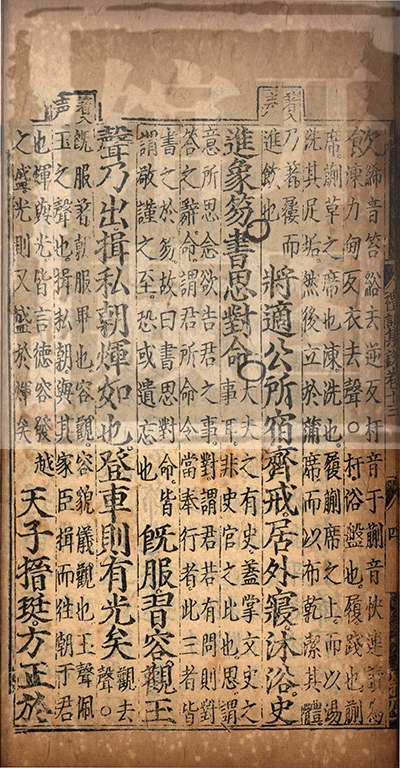 著入声
絺音笞綌去逆反杅音于蒯音快連
湅力甸反衣去聲。杅浴盤也履踐也蒯
席蒯草之席也湅洗也履蒯席之上而以湯
洗其足垢然後立於蒲席而以布乾潔其體
乃著屨而
進飲也
將適公所宿齊戒居外寢沐浴史
進象笏書思對命
大夫之有史蓋掌文史之
事耳非史官之比也思謂
意所思念欲告君之事對謂君若有問則對
答之辭命謂君所命令當奉行者此三者皆
書之於笏故曰書思對命皆
謂敬謹之至恐或遺忘也
既服習容觀玉
聲乃出揖私朝煇如也登車則有光矣
觀去
聲。
著入声
既服著朝服畢也容觀容貌儀觀也玉聲佩
玉之聲也揖私朝與其家臣揖而往朝于君
也煇與光皆言德容發越
之盛光則又盛於煇矣
天子搢珽方正於